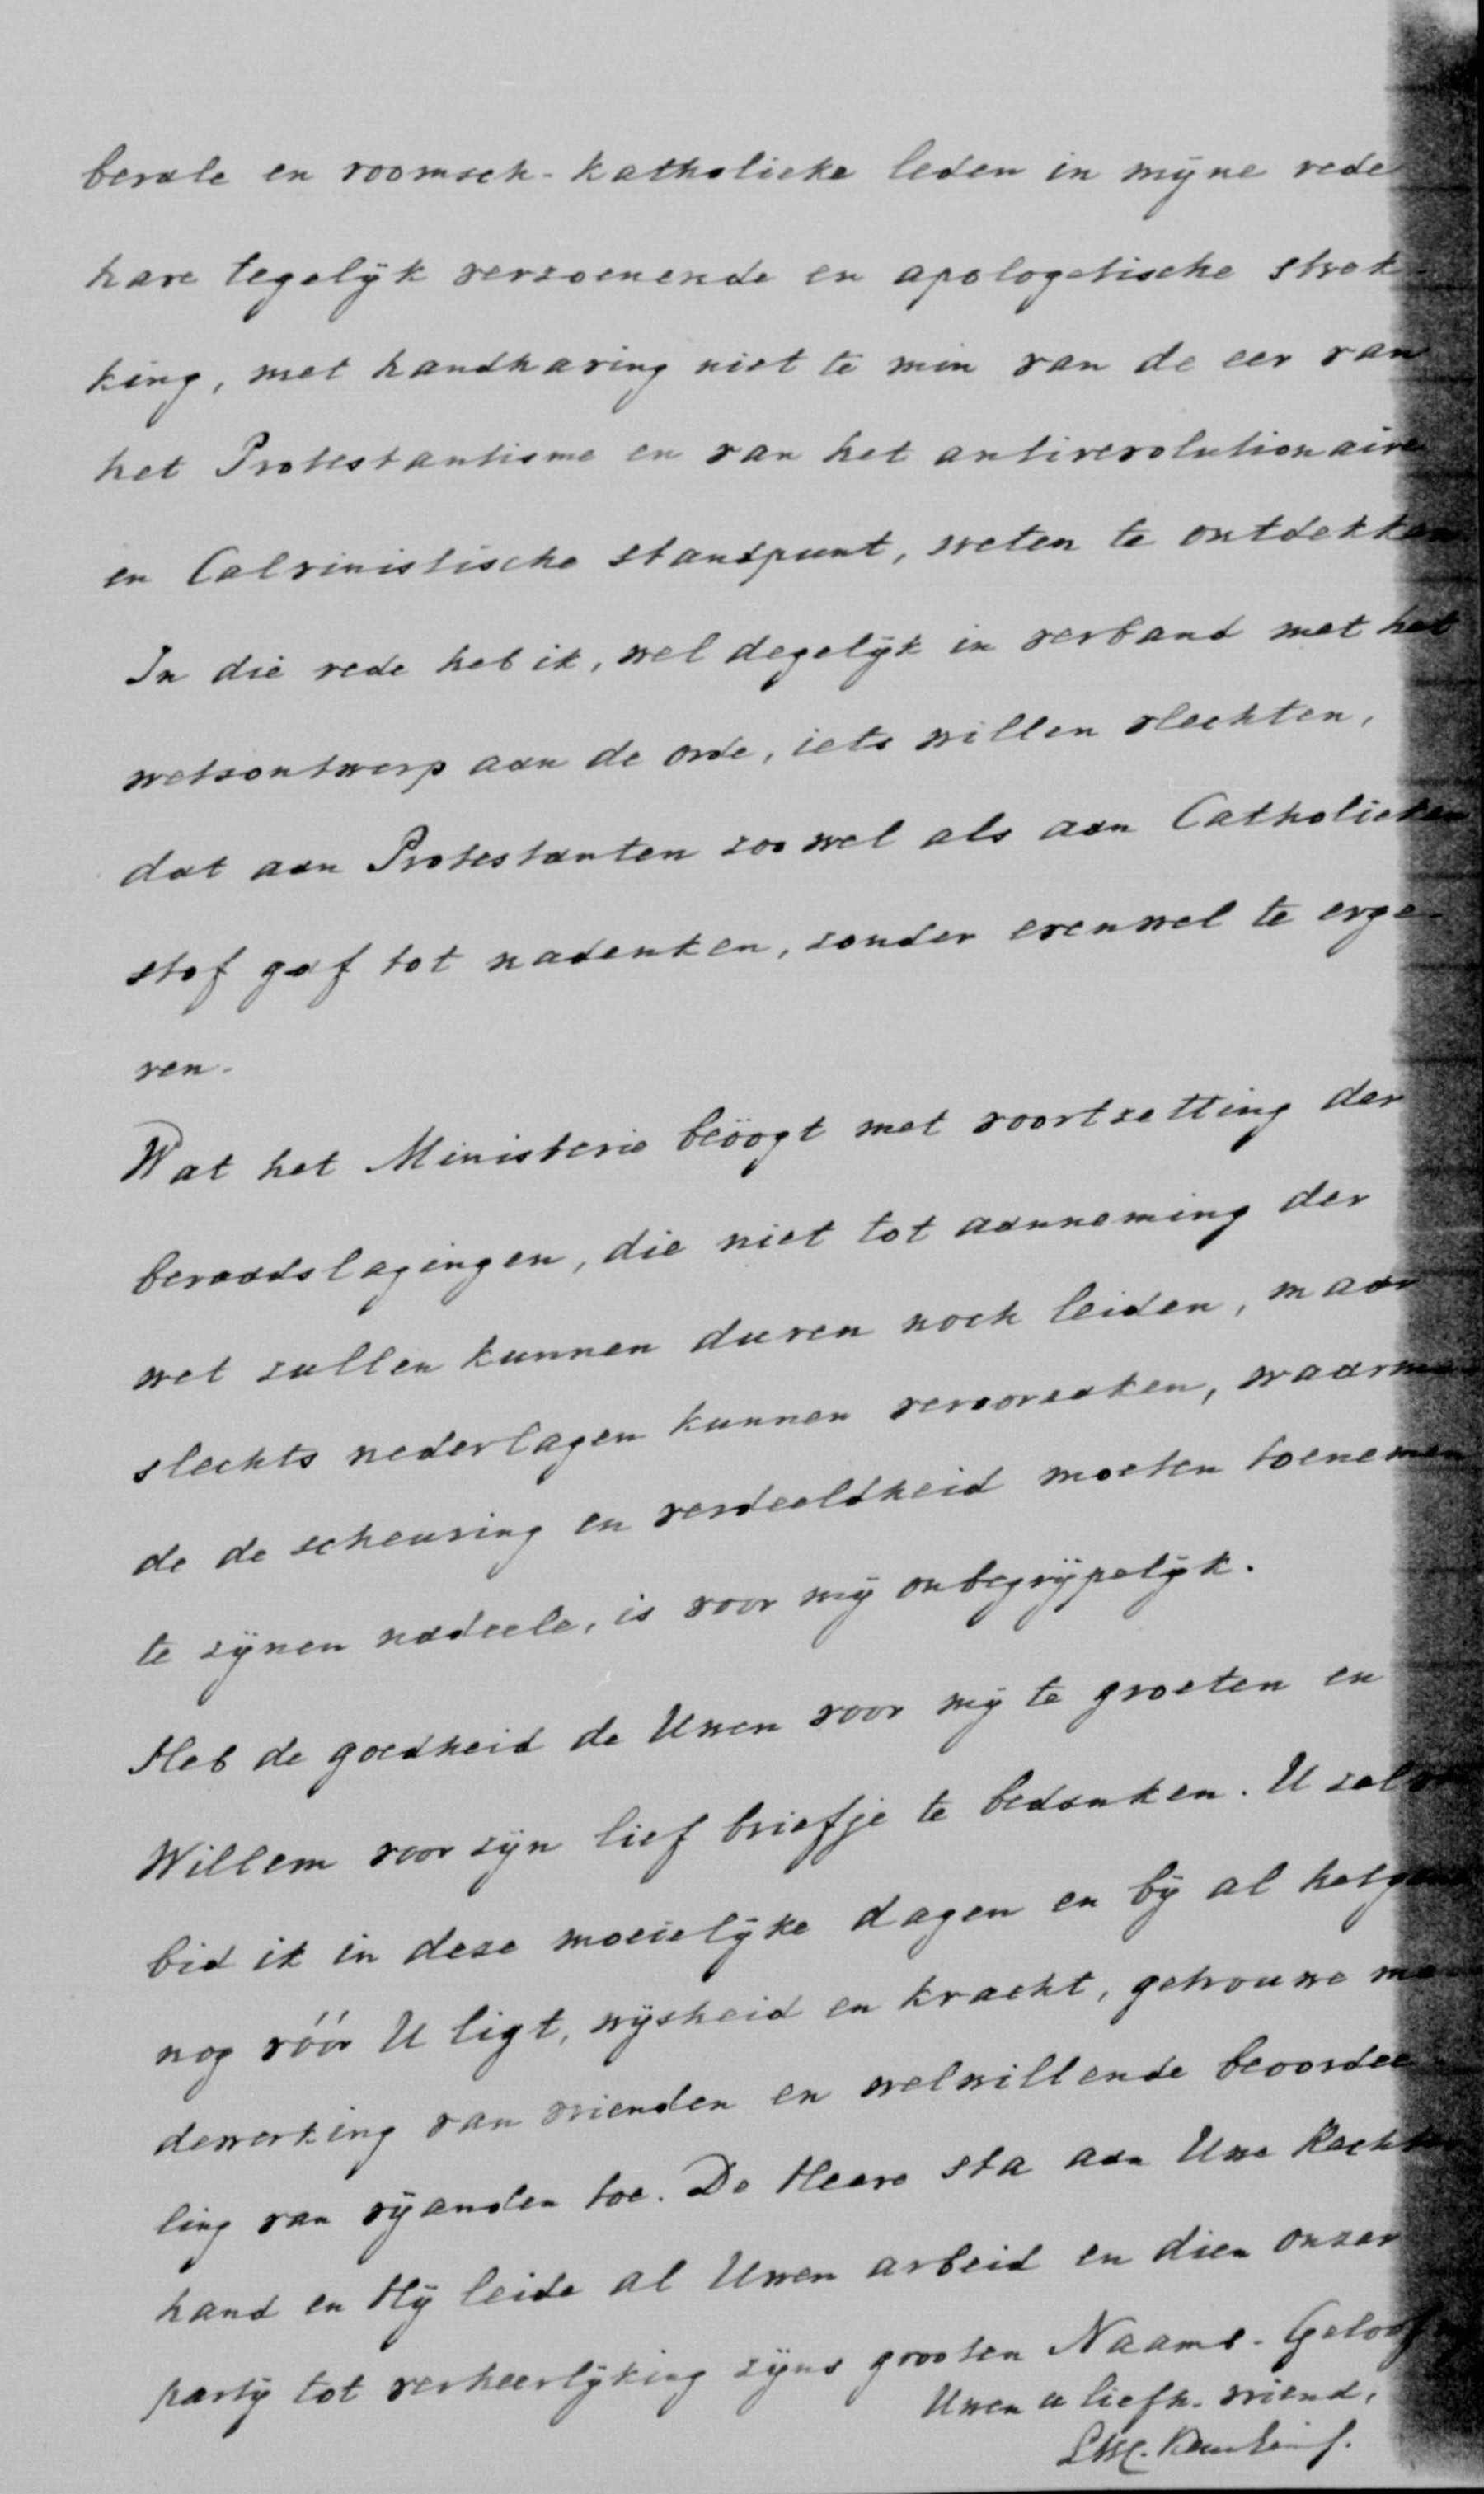 berale en roomsch-katholieke leden in mijne rede
hare tegelijk verzoenende en apologetische strek-
king, met handhaving niet te min van de eer van
het Protestantisme en van het antirevolutionaire
en Calvinistische standpunt, weten te ontdekken
In die rede heb ik, wel degelijk in verband met het
wetsontwerp aan de orde, iets willen vlechten,
dat aan Protestanten zoowel als aan Catholieken
stof gaf tot nadenken, zonder evenwel te erge-
ren.
Wat het Ministerie beöogt met voortzetting der
beraadslagingen, die niet tot aanneming der
wet zullen kunnen duren noch leiden, maar
slechts nederlagen kunnen veroorzaken, waarme-
de de scheuring en verdeeldheid moeten toenemen
te zijnen nadeele, is voor mij onbegrijpelijk.
Heb de goedheid de Uwen voor mij te groeten en
Willem voor zijn lief briefje te bedanken. U zelven
bid ik in deze moeielijke dagen en bij al hetgeen
nog vóór U ligt, wijsheid en kracht, getrouwe me-
dewerking van vrienden en welwillende beoordee-
ling van vijanden toe. De Heere sta aan Uwe Rechter
hand en Hij leide al Uwen arbeid en dien onzer
partij tot verheerlijking zijns grooten Naams. Geloof
Uwen u liefh. vriend,